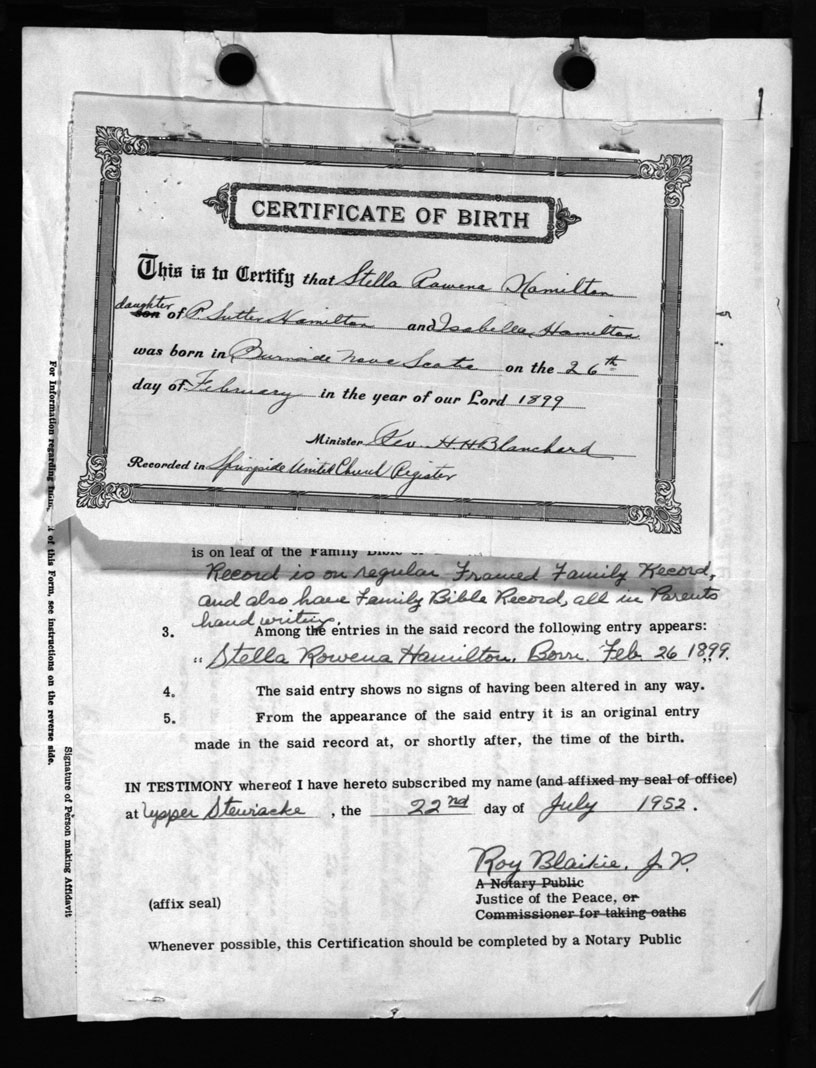 CERTIFICATE OF BIRTH
This is to Certify that Stella Rowena Hamilton
daughter
son of P. Sutter Hamilton and Isabella Hamilton
was born in Burnside Nova Scotia on the 26th
day of February in the year of our Lord 1899
Minister Rev. H. H. Blanchard
Recorded in Springside United Church Register
is on leaf of the Family Bible
Record is on regular Framed Family Record,
and also have Family Bible Record, all in Parents
hand writing.
3. Among the entries in the said record the following entry appears:
" Stella Rowena Hamilton. Born. Feb. 26 1899.
4. The said entry shows no signs of having been altered in any way.
5. From the appearance of the said entry it is an original entry
made in the said record at, or shortly after, the time of the birth.
IN TESTIMONY whereof I have hereto subscribed my name (and affixed my seal of office)
at Upper Stewiacke, the 22nd day of July 1952.
Roy Blaikie, J. P.
A Notary Public
(affix seal) Justice of the Peace, or
Commissioner for taking oaths
Whenever possible, this Certification should be completed by a Notary Public
For Information regarding of this Form, see instructions on the reverse side.
Signature of Person making Affidavit